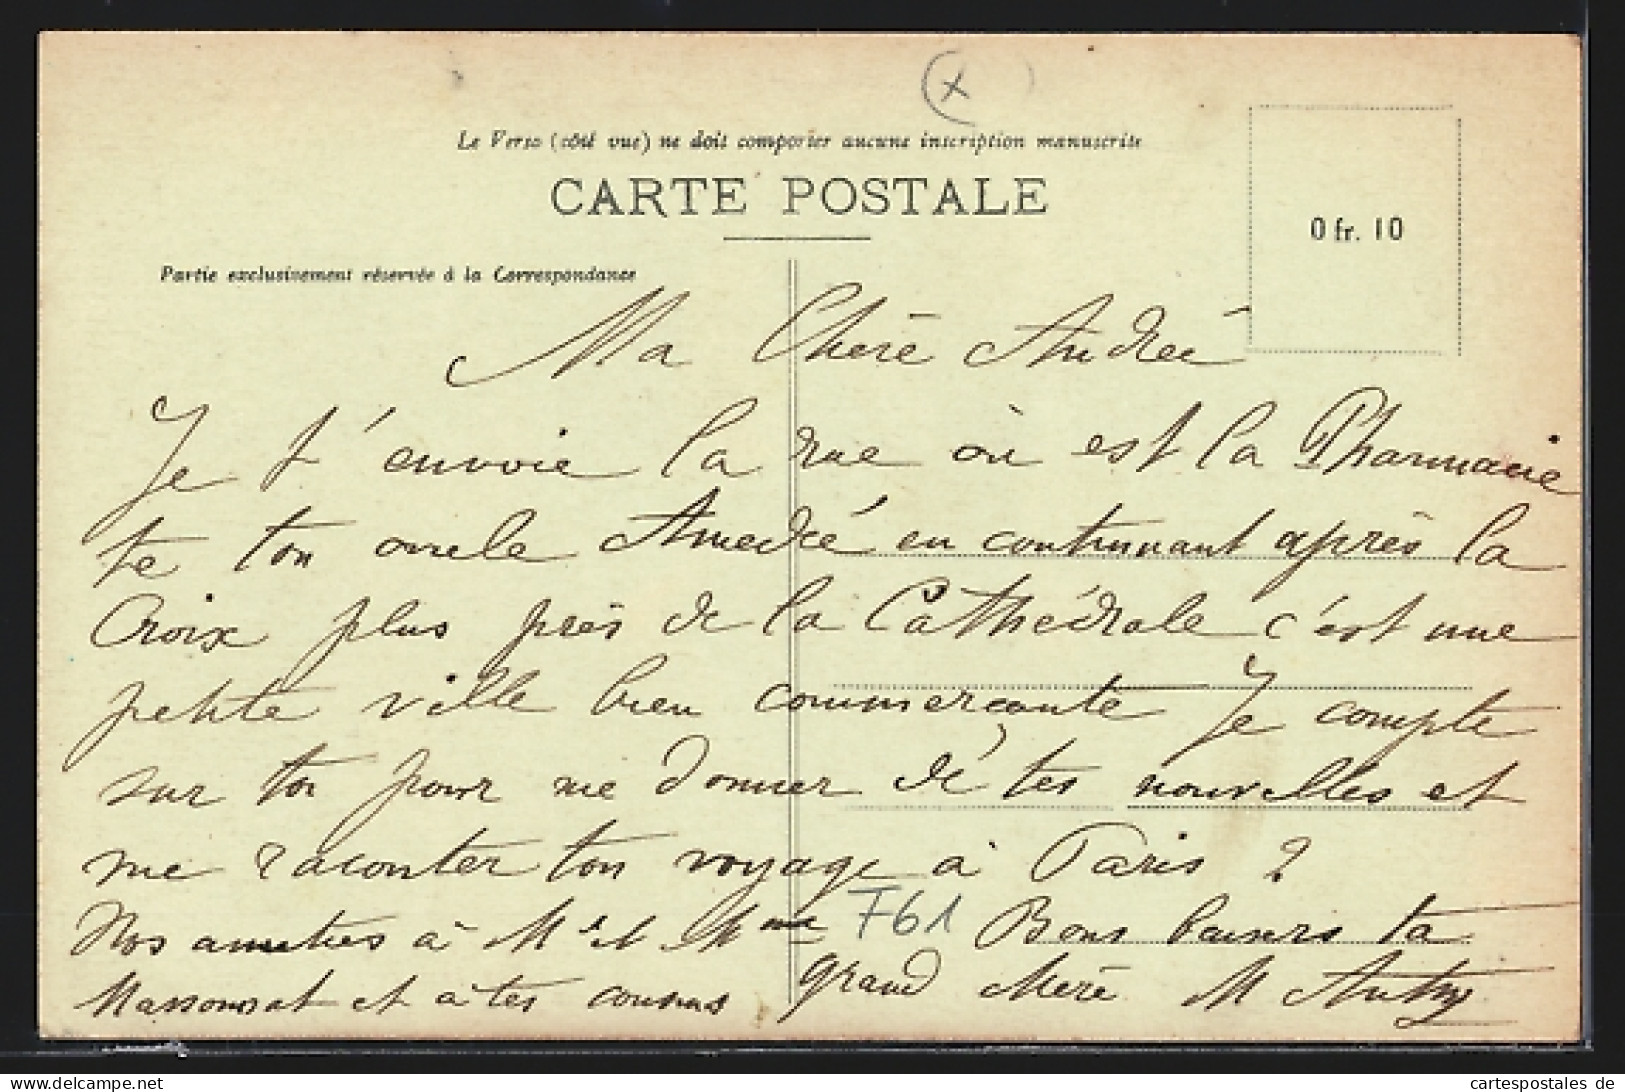 (x)
Le Verso (côté vue) ne doit comporter aucune inscription manuscrite
CARTE POSTALE
0 fr. 10
Partie exclusivement réservée à la Correspondance
Ma Chère Andrée
Je t'envoie la rue où est la Pharmacie
de ton oncle Amedée en continuant après la
Croix plus près de la Cathédrale c'est une
petite ville bien commerçante Je compte
sur toi pour me donner de tes nouvelles et
me raconter ton voyage à Paris ?
Nos amitiés à Mr et Mme
et à tes cousins
F61
Bons baisers ta
grand Mère M
cartespostales de